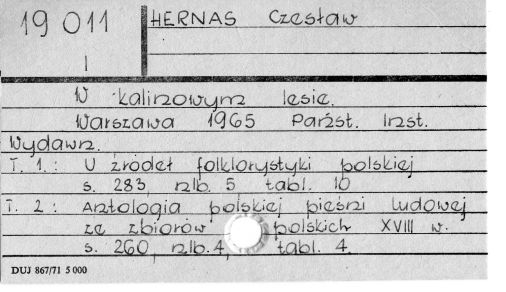 19 011
HERNAS Czesław
I
W kalinowym lesie.
Warszawa 1965 Państ. Inst.
Wydawn.
T. 1.: U źródeł folklorystyki polskiej
s. 283 nlb. 5 tabl. 10
T. 2: Antologia polskiej pieśni ludowej
ze zbiorów polskich XVIII w.
s. 260, nlb. 4, tabl. 4.
DUJ 867/71 5 000